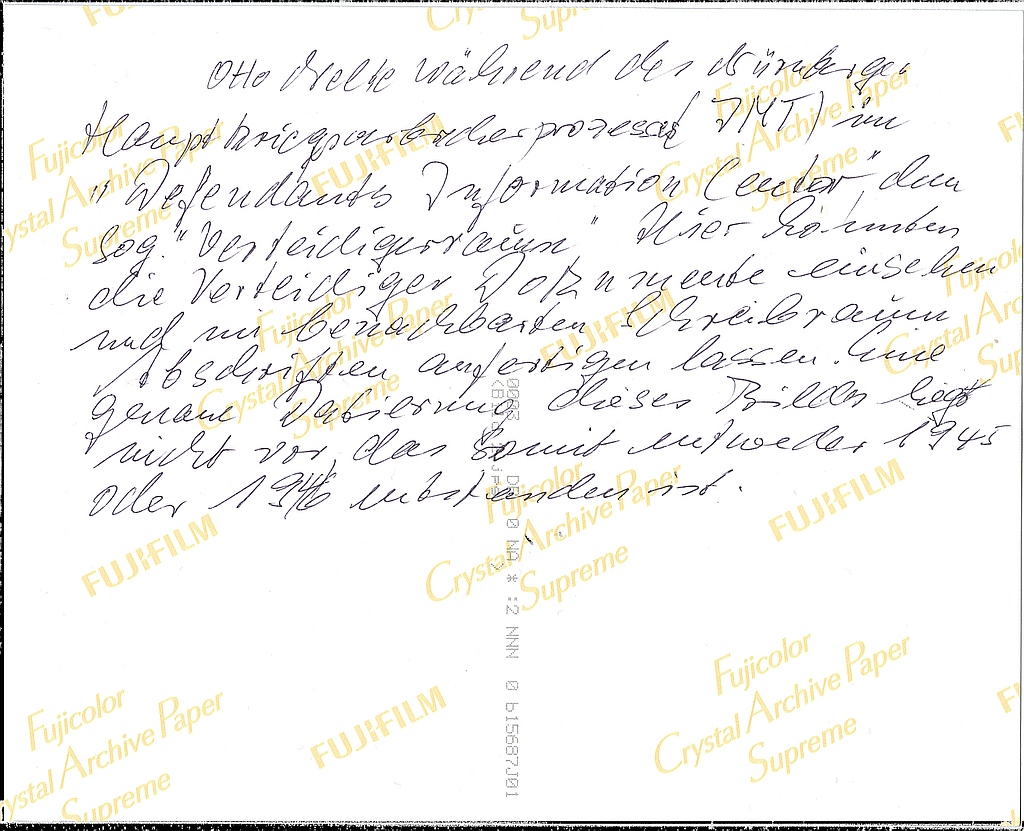 Otto während des Nürnberger
Hauptkriegsverbrecherprozesses (IMT) im
"Defendants Information Center", dem
sog. "Verteidigerraum" Hier konnten
die Verteidiger Dokumente einsehen
und im benachbarten Schreibraum
Abschriften anfertigen lassen. Eine
genaue Datierung dieses Bildes liegt
nicht vor, das somit entweder 1945
oder 1946 entstanden ist.
FUJIFILM
Fujicolor
Crystal Archive Paper
Supreme
Fujicolor
Crystal Archive Paper
Supreme
FUJIFILM
Fujicolor
Crystal Archive Paper
Supreme
Fujicolor
Crystal Archive Paper
Supreme
FUJIFILM
Fujicolor
Crystal Archive Paper
Supreme
FUJIFILM
Fujicolor
Crystal Archive Paper
Supreme
FUJIFILM
Fujicolor
Crystal Archive Paper
Supreme
FUJIFILM
Fujicolor
Crystal Archive Paper
Supreme
0 NA * :2 NNN 0 b15687J01